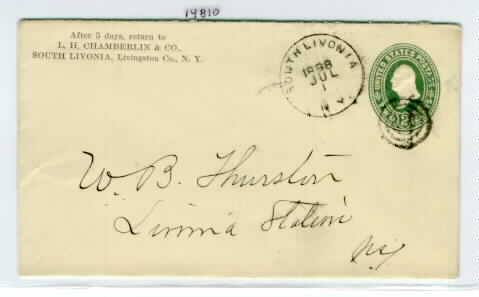 19810
After 5 days, return to
L. H. CHAMBERLIN & CO.,
SOUTH LIVONIA, Livingston Co., N. Y.
SOUTH LIVONIA
1888
JUL
1
N.Y.
UNITED STATES POSTAGE
W. B. Thurston
Livonia Station
NY